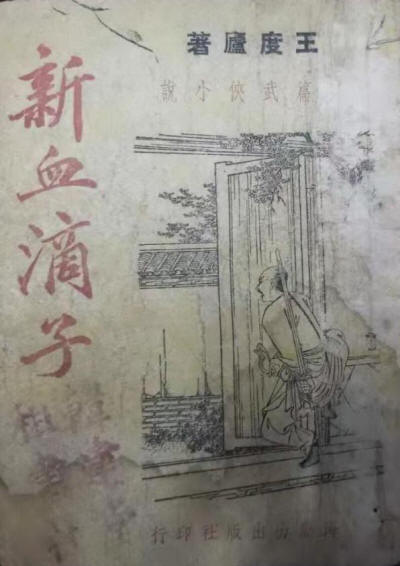 王度廬著
篇武俠小說
新血滴子
出版社印行